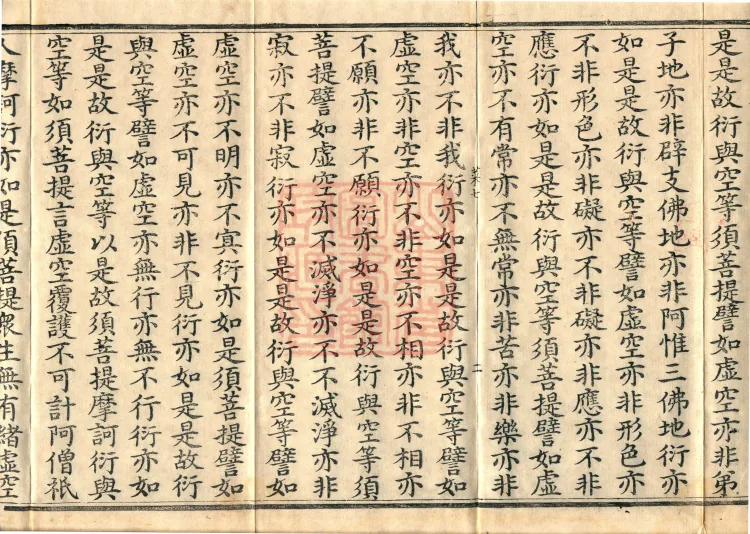 是是故衍與空等須菩提譬如虛空亦非弟
子地亦非辟支佛地亦非阿惟三佛地衍亦
如是是故衍與空等譬如虛空亦非形色亦
不非形色亦非礙亦不非礙亦非應亦不非
應衍亦如是是故衍與空等須菩提譬如虛
空亦不有常亦不無常亦非苦亦非樂亦非
菜七
二
我亦不非我衍亦如是是故衍與空等譬如
虛空亦非空亦不非空亦不相亦非不相亦
不願亦非不願衍亦如是是故衍與空等須
菩提譬如虛空亦不滅淨亦不不滅淨亦非
寂亦不非寂衍亦如是是故衍與空等譬如
虛空亦不明亦不冥衍亦如是須菩提譬如
虛空亦不可見亦非不見衍亦如是是故衍
與空等譬如虛空亦無行亦無不行衍亦如
是是故衍與空等以是故須菩提摩訶衍與
空等如須菩提言虛空覆護不可計阿僧祇
人摩訶衍亦如是須菩提眾生無有緒虛空